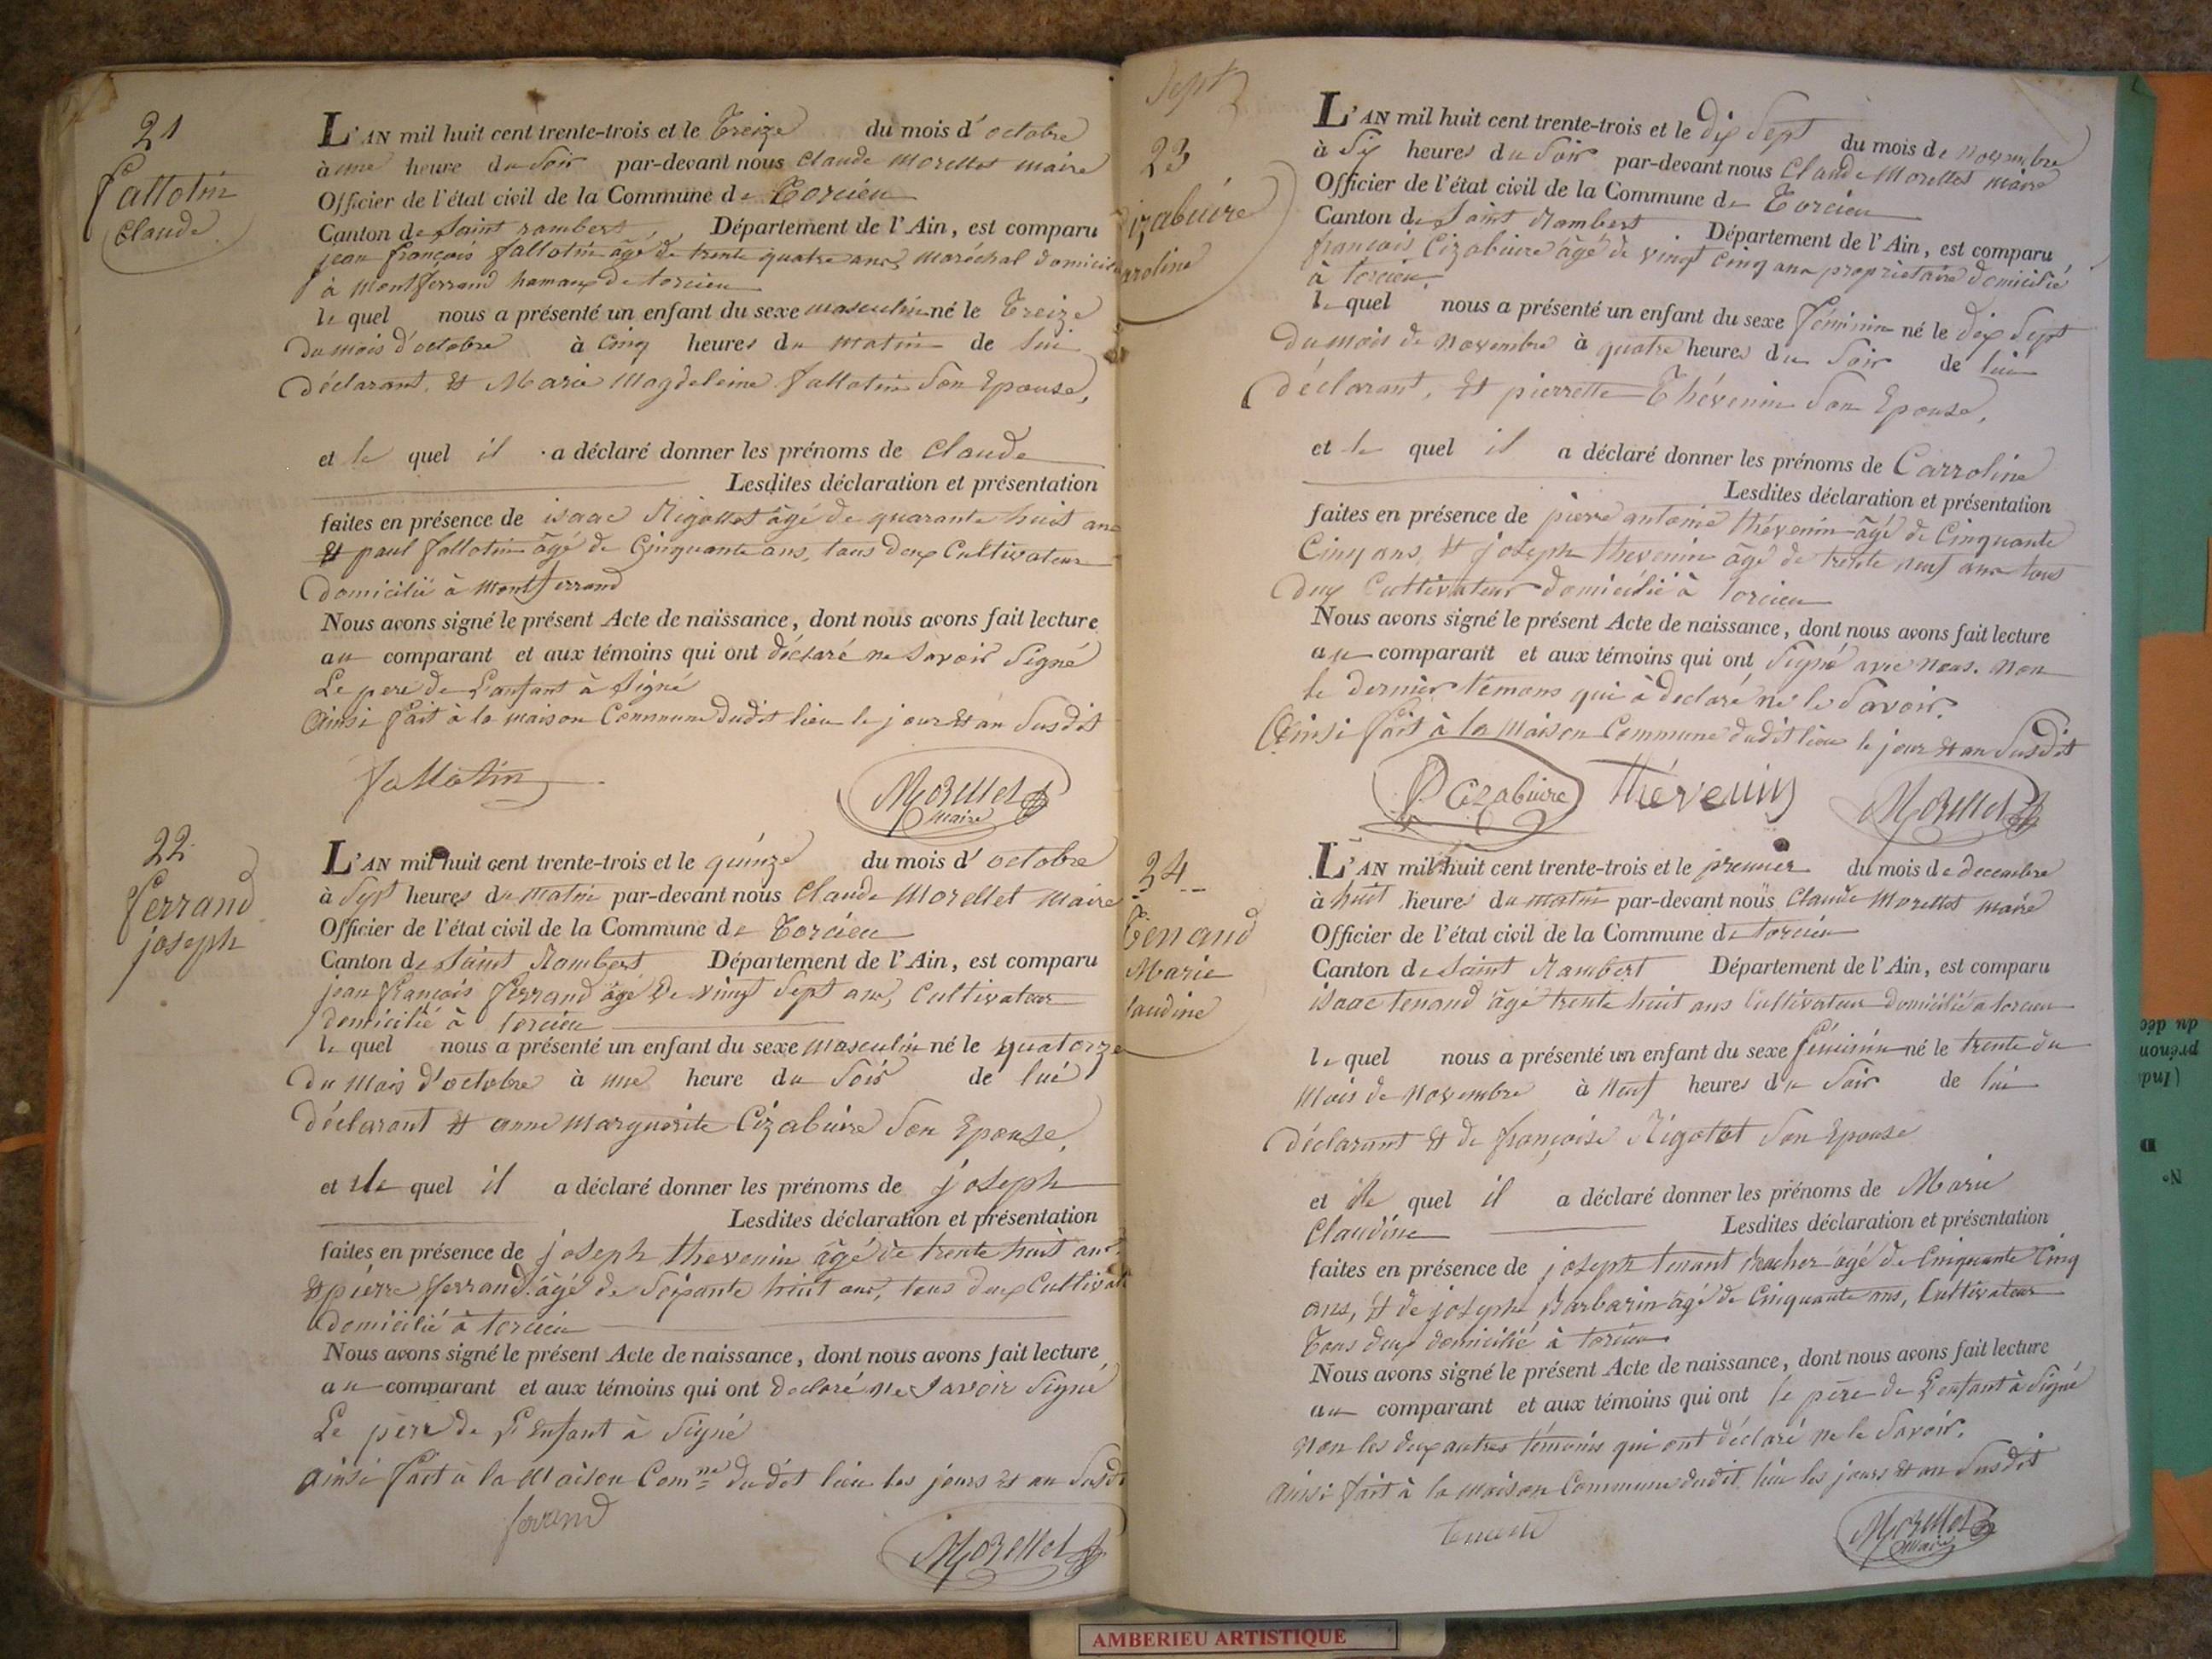 21
fallotin
Claude
L'AN mil huit cent trente-trois et le Treize du mois d'octobre
à une heure du Soir par-devant nous Claude Morellet maire
Officier de l'état civil de la Commune de Torcieu
Canton de Saint rambert, Département de l'Ain, est comparu
jean françois fallotin âgé de trente quatre ans, maréchal domicilié
à Montferrand hamaux de torcieu
le quel nous a présenté un enfant du sexe masculin né le Treize
du mois d'octobre à Cinq heures du matin de lui
déclarant, Et Marie Magdeleine fallotin Son Epouse,
et le quel il a déclaré donner les prénoms de Claude
Lesdites déclaration et présentation
faites en présence de isaac Rigollet âgé de quarante huit ans
Et paul fallotin âgé de Cinquante ans, tous deux Cultivateur
domicilié à Montferrand
Nous avons signé le présent Acte de naissance, dont nous avons fait lecture
au comparant et aux témoins qui ont déclaré ne Savoir Signé
Le pere de L'anfant à Signé
Ainsi fait à la maison Commune dudit lieu le jour et an Susdit
fallotin
Morellet
maire
22
ferrand
joseph
L'AN mil huit cent trente-trois et le quinze du mois d'octobre
à Sept heures du Matin par-devant nous Claude Morellet Maire
Officier de l'état civil de la Commune de Torcieu
Canton de Saint Rambert Département de l'Ain, est comparu
jean françois ferrand âgé de vingt Sept ans, Cultivateur
domicilié à torcieu
le quel nous a présenté un enfant du sexe masculin né le quatorze
du Mois d'octobre à une heure du Soir de lui
déclarant Et anne Marguerite Cizabuire Son Epouse,
et le quel il a déclaré donner les prénoms de joseph
Lesdites déclaration et présentation
faites en présence de joseph thevenin âgé de trente huit ans
Et pierre ferrand âgé de Soixante huit ans, tous deux Cultivat
domicilié à torcieu
Nous avons signé le présent Acte de naissance, dont nous avons fait lecture
au comparant et aux témoins qui ont déclaré ne Savoir Signé
Le père de L'Enfant à Signé
Ainsi fait à la Maison Comne dudit lieu les jours et an Susdi
ferrand
Morellet
Sept
23
izabuire
aroline
L'AN mil huit cent trente-trois et le dix Sept du mois de Novembre
à Six heures du Soir par-devant nous Claude Morellet maire
Officier de l'état civil de la Commune de Torcieu
Canton de Saint Rambert Département de l'Ain, est comparu
françois Cizabuire âgé de vingt Cinq ans propriétaire domicilié
à torcieu,
le quel nous a présenté un enfant du sexe féminin né le dix Sept
du mois de Novembre à quatre heures du Soir de lui
déclarant, Et pierrette Thévenin Son Epouse,
et le quel il a déclaré donner les prénoms de Carroline
Lesdites déclaration et présentation
faites en présence de pierre antoine thévenin âgé de Cinquante
Cinq ans, Et joseph thevenin âgé de trente neuf ans tous
deux Cultivateur domicilié à torcieu
Nous avons signé le présent Acte de naissance, dont nous avons fait lecture
au comparant et aux témoins qui ont Signé avec Nous. Non
le dernier témons qui à declaré ne le Savoir.
Ainsi fait à la Maison Commune dudit lieu le jour et an Susdit
Cizabuire Thévenin Morellet
24
Tenand
Marie
laudine
L'AN mil huit cent trente-trois et le premier du mois de decembre
à huit heures du matin par-devant nous Claude Morellet maire
Officier de l'état civil de la Commune de torcieu
Canton de Saint Rambert Département de l'Ain, est comparu
isaac tenand âgé trente huit ans Cultivateur domicilié a torcieu
le quel nous a présenté un enfant du sexe féminin né le trente du
Mois de Novembre à Neuf heures du Soir de lui
déclarant Et de françoise Rigollet Son Epouse
et le quel il a déclaré donner les prénoms de Marie
Claudine Lesdites déclaration et présentation
faites en présence de joseph tenant âgé de Cinquante Cinq
ans, Et de joseph barbarin âgé de Cinquante ans, Cultivateur
tous deux domicilié à torcieu
Nous avons signé le présent Acte de naissance, dont nous avons fait lecture
au comparant et aux témoins qui ont le père de L'enfant à Signé
Non les deux autres témoins qui ont déclaré ne le Savoir.
Ainsi fait à la Maison Commune dudit lieu les jours et an Susdit
tenand
Morellet
maire
AMBERIEU ARTISTIQUE